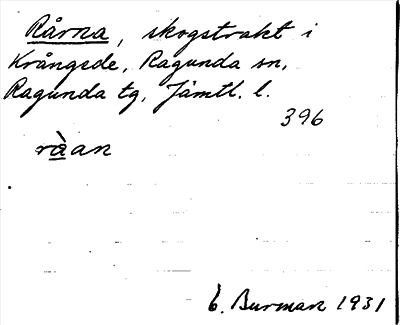 Rårna, skogstrakt i
Krångede, Ragunda sn,
Ragunda tg, Jämtl. l.
396
ràan
6. Burman 1931